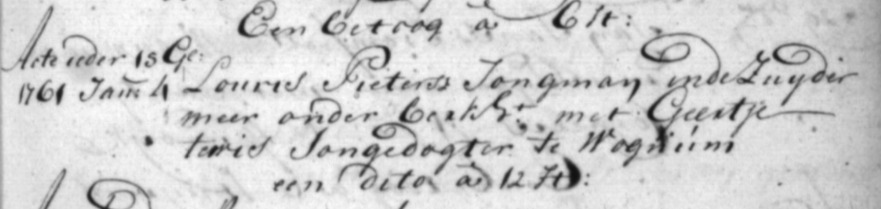 Een betoog à 6 St:
Acte ieder 18 Ge:
1761 Janr: 4 Louris Pieterss Jongman inde Zuyder
meer onder berkht met Geertje
teuis Jongedogter te Wognúm
een dito à 12 St: